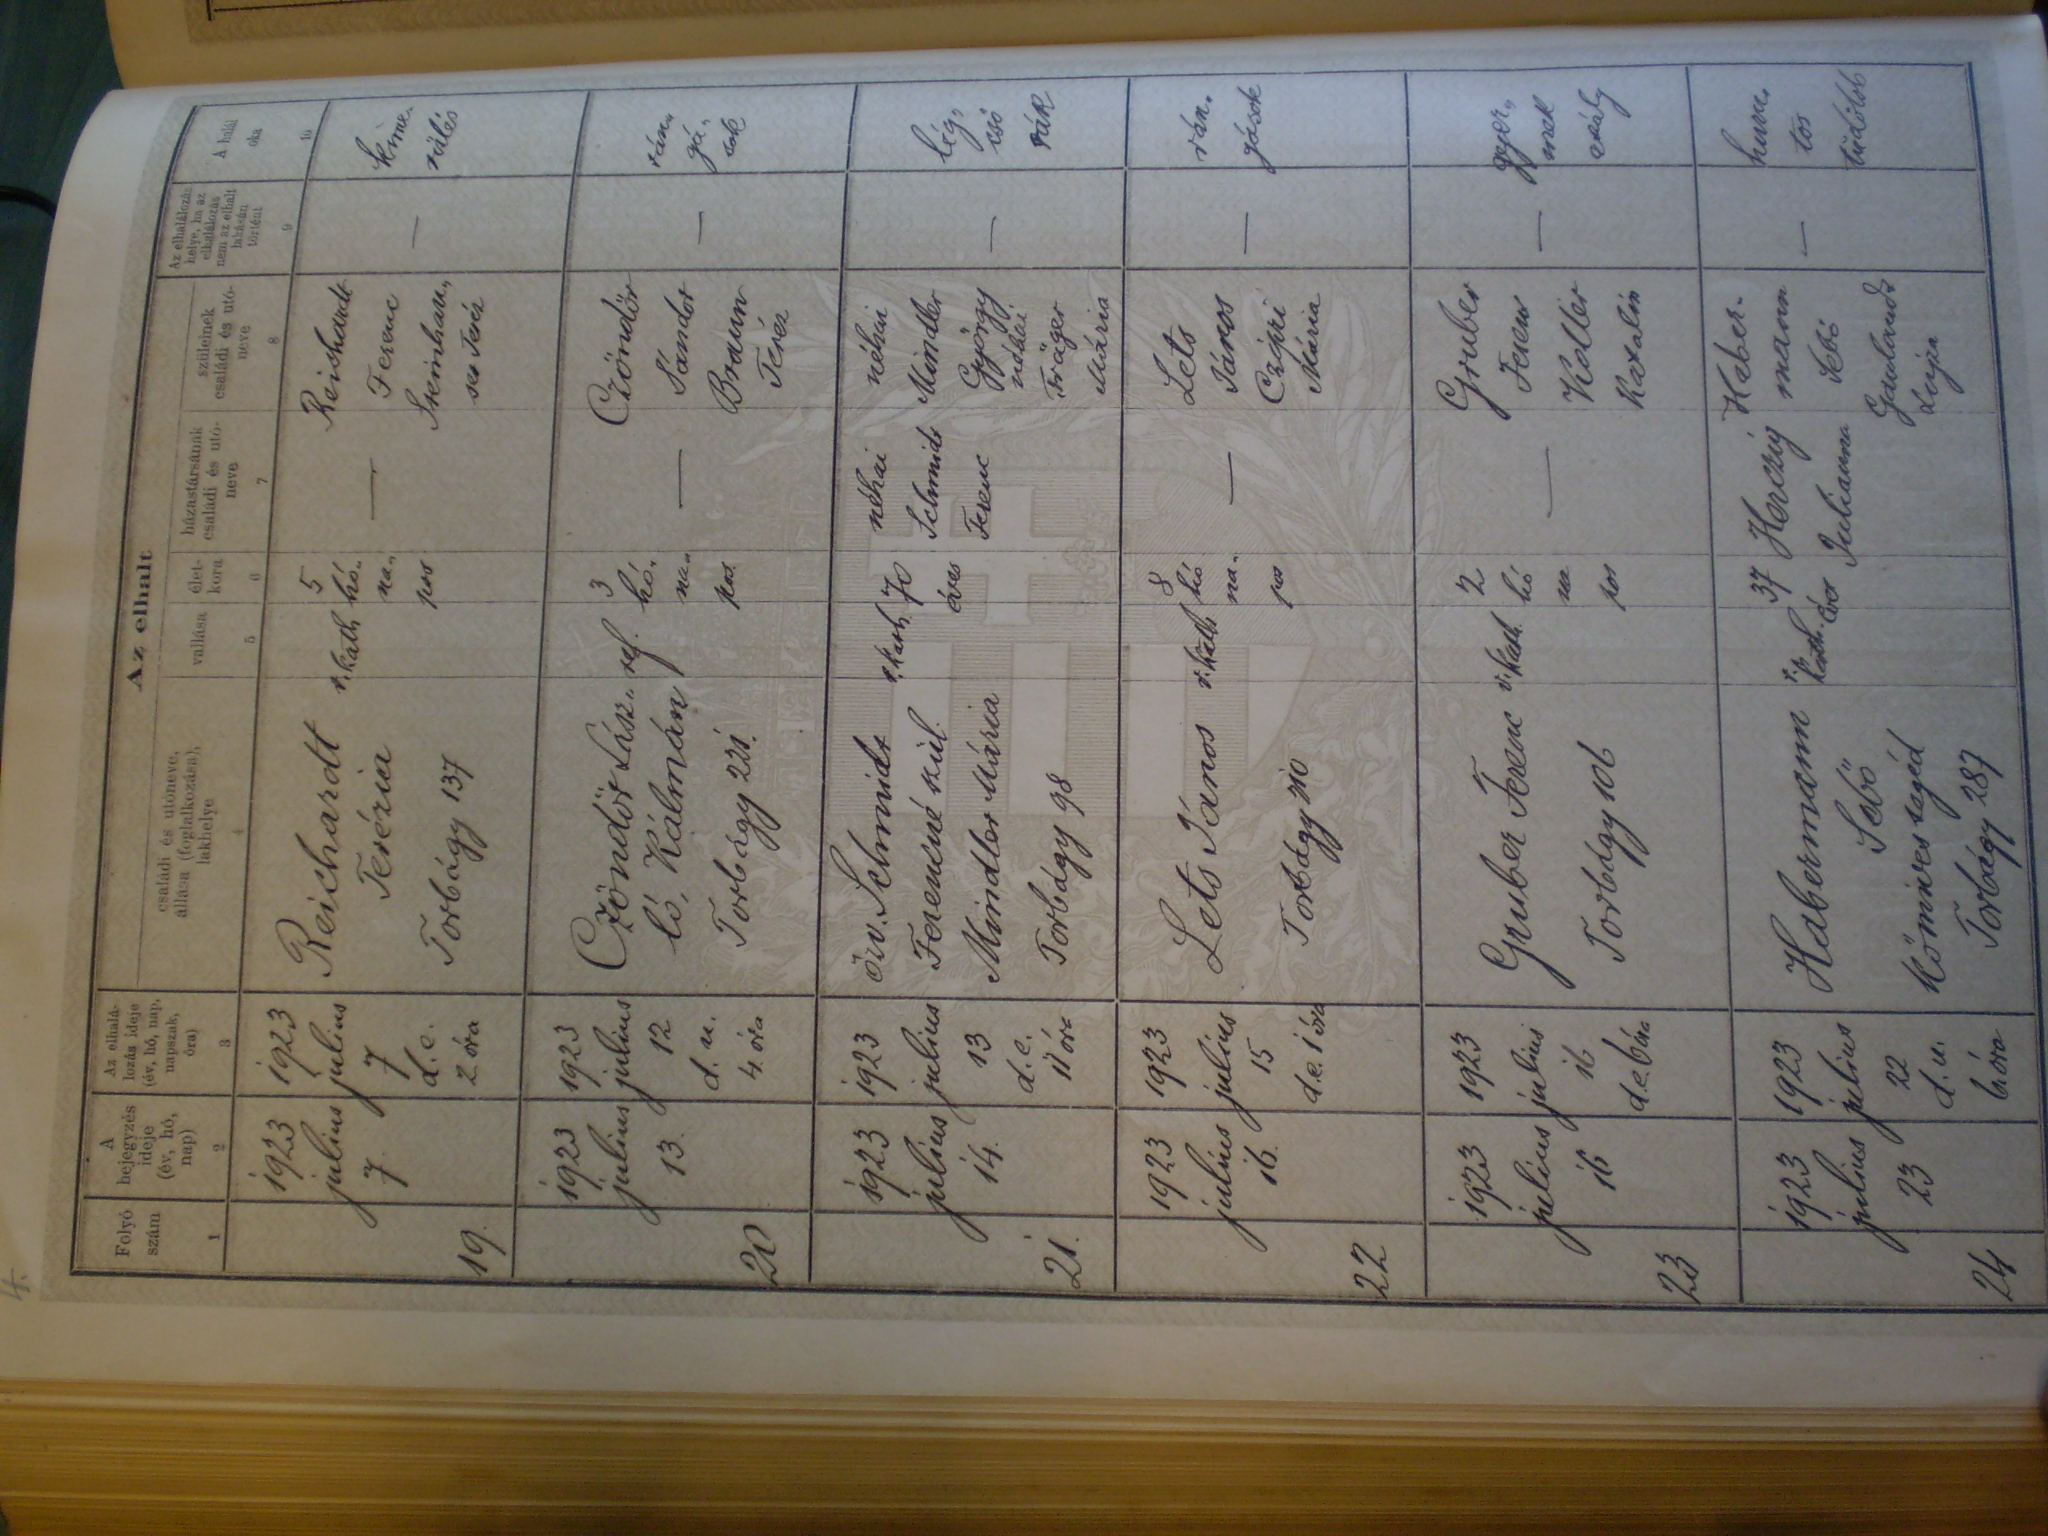 4.
Az elhalt
Folyó
szám
A
bejegyzés
ideje
(év, hó,
nap)
Az elhalá-
lozás ideje
(év, hó, nap,
napszak,
óra)
családi és utóneve,
állása (foglalkozása),
lakhelye
vallása
élet-
kora
házastársának
családi és utó-
neve
szüleinek
családi és utó-
neve
Az elhalálozás
helye, ha az
elhalálozás
nem az elhalt
lakásán
történt
A halál
oka
1
2
3
4
5
6
7
8
9
10
19.
1923
julius
7.
1923
julius
7
d.e.
2 óra
Reichardt
Terézia
Torbágy 137
r. kath.
5
hó-
na-
pos
—
Reishardt
Ferenc
Steinhau-
ser Teréz
—
kime-
rülés
20
1923
julius
13.
1923
julius
12
d. u.
4 óra
Czöndör Lász-
ló, Kálmán
Torbágy 221.
ref.
3
hó-
na-
pos.
—
Czöndör
Sándor
Braun
Teréz
—
rán-
gá-
sok
21.
1923
julius
14.
1923
julius
13
d. e.
11 óra
özv. Schmidt
Ferencné szül.
Mindler Mária
Torbágy 98
r. kath.
70
éves
néhai
Schmidt
Ferenc
néhai
Mindler
György
néhai
Träger
Mária
—
lég-
cső
rák
22
1923
julius
16.
1923
julius
15
d. e. 1 óra
Lets János
Torbágy
r. kath
8
hó
na-
pos
—
Lets
János
Mária
—
rán-
gások
23
1923
julius
16
1923
julius
16
d. e. 6 óra
Gruber Ferenc
Torbágy 106
r. kath.
2
hó
na
pos
—
Gruber
Ferenc
Koller
Katalin
—
gyer-
mek
aszály
24
1923
julius
23
1923
julius
22
d. u.
6 óra
Habermann
Sebő
Kőmives segéd
Torbágy 287
r.
kath.
37
éves
Herczig
Julianna
Haber-
mann
Sebő
—
tüdőlob